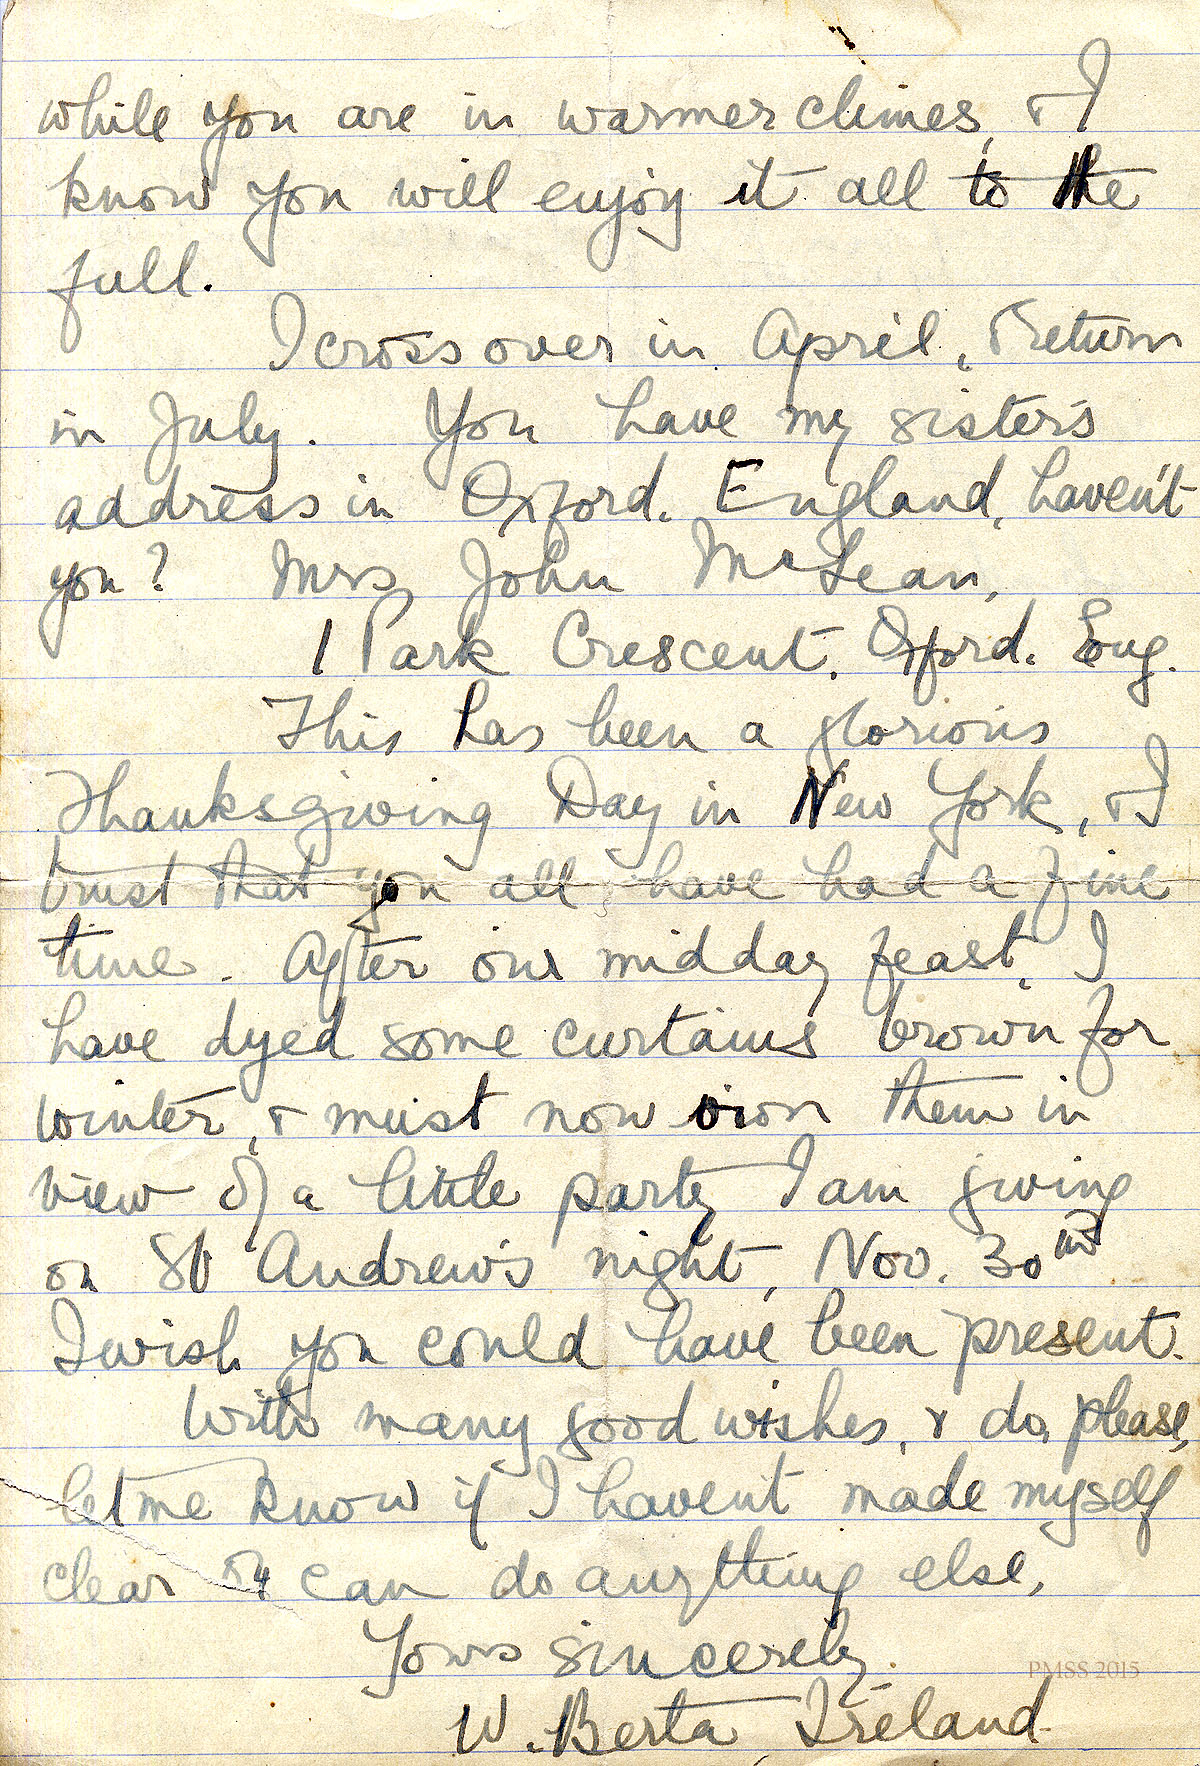 while you are in warmer climes, & I
know you will enjoy it all to the
full.
I cross over in April, & return
in July. You have my sister's
address in Oxford. England, haven't
you? Mrs John McLean,
1 Park Crescent, Oxford. Eng.
This has been a glorious
Thanksgiving Day in New York, & I
trust that you all have had a fine
time. After our midday feast, I
have dyed some curtains brown for
winter, & must now iron them in
view of a little party I am giving
on St Andrew's night, Nov. 30th
I wish you could have been present.
With many good wishes, & do, please,
let me know if I haven't made myself
clear or can do anything else,
Yours sincerely.
PMSS 2015
W. Berta Ireland